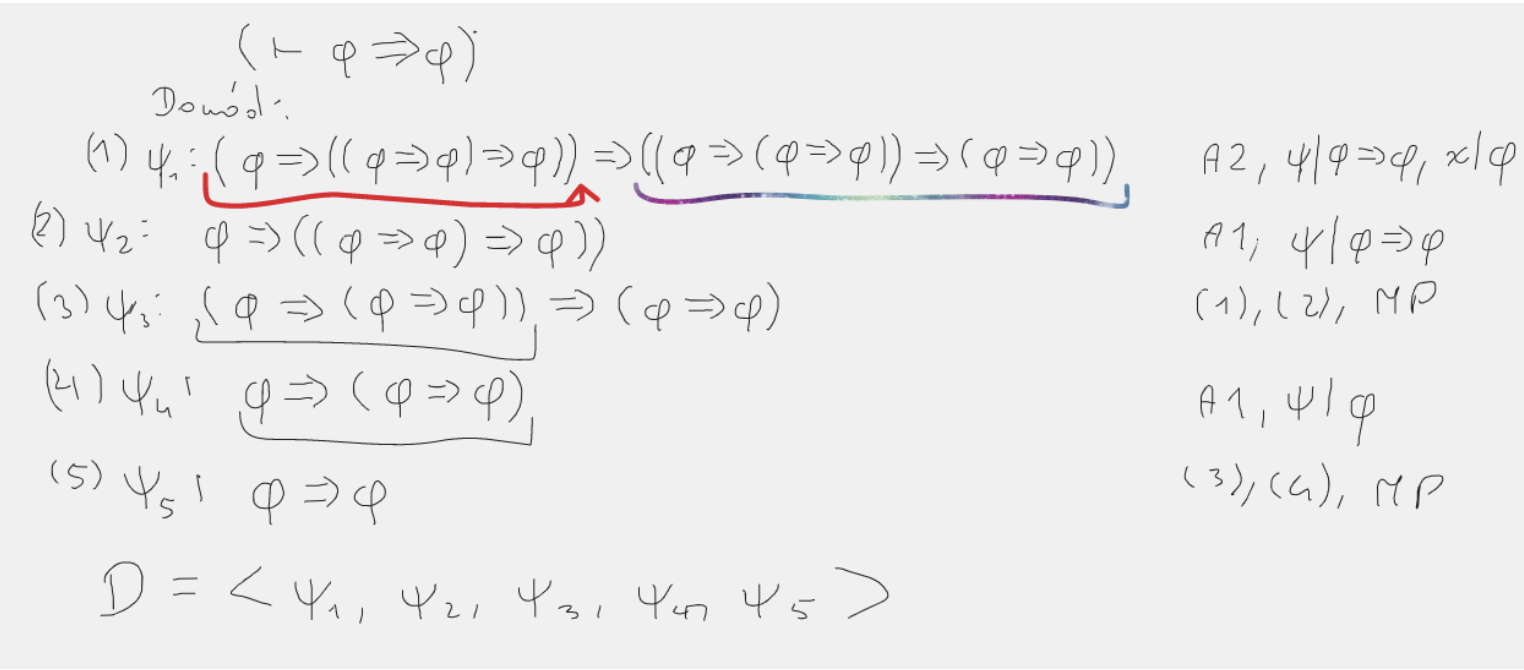 (⊢ φ ⇒ φ)
Dowód:
(1) ψ₁: (φ ⇒ ((φ ⇒ φ) ⇒ φ)) ⇒ ((φ ⇒ (φ ⇒ φ)) ⇒ (φ ⇒ φ)) A2, ψ|φ ⇒ φ, χ|φ
(2) ψ₂: φ ⇒ ((φ ⇒ φ) ⇒ φ)) A1, ψ|φ ⇒ φ
(3) ψ₃: (φ ⇒ (φ ⇒ φ)) ⇒ (φ ⇒ φ) (1), (2), MP
(4) ψ₄: φ ⇒ (φ ⇒ φ) A1, ψ|φ
(5) ψ₅: φ ⇒ φ (3), (4), MP
D = < ψ₁, ψ₂, ψ₃, ψ₄, ψ₅ >